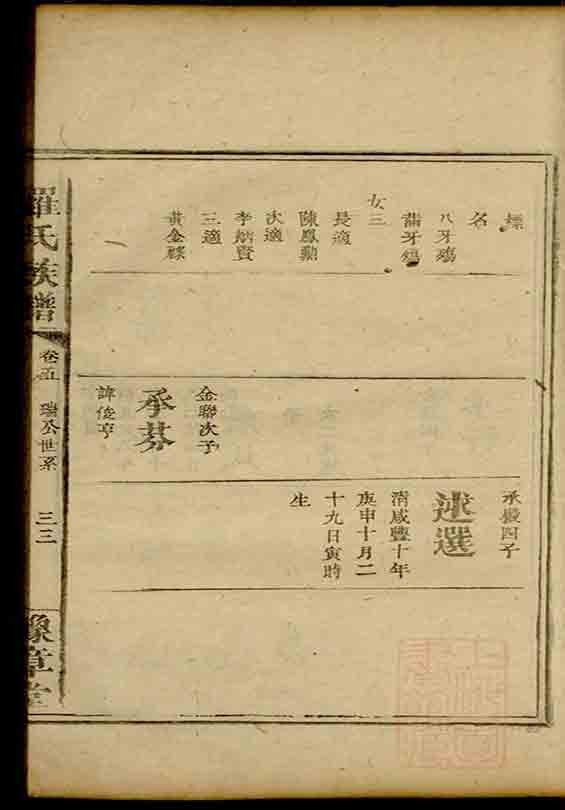 標
名
八牙殤
蒲牙殤
女三
長適
陳鳳勳
次適
李炳賢
三適
黃金祿
金聯次子
承芬
諱俊亨
承毅四子
述選
清咸豐十年
庚申十月二
十九日寅時
生
羅氏族譜
卷五
瑞公世系
三三
豫章堂